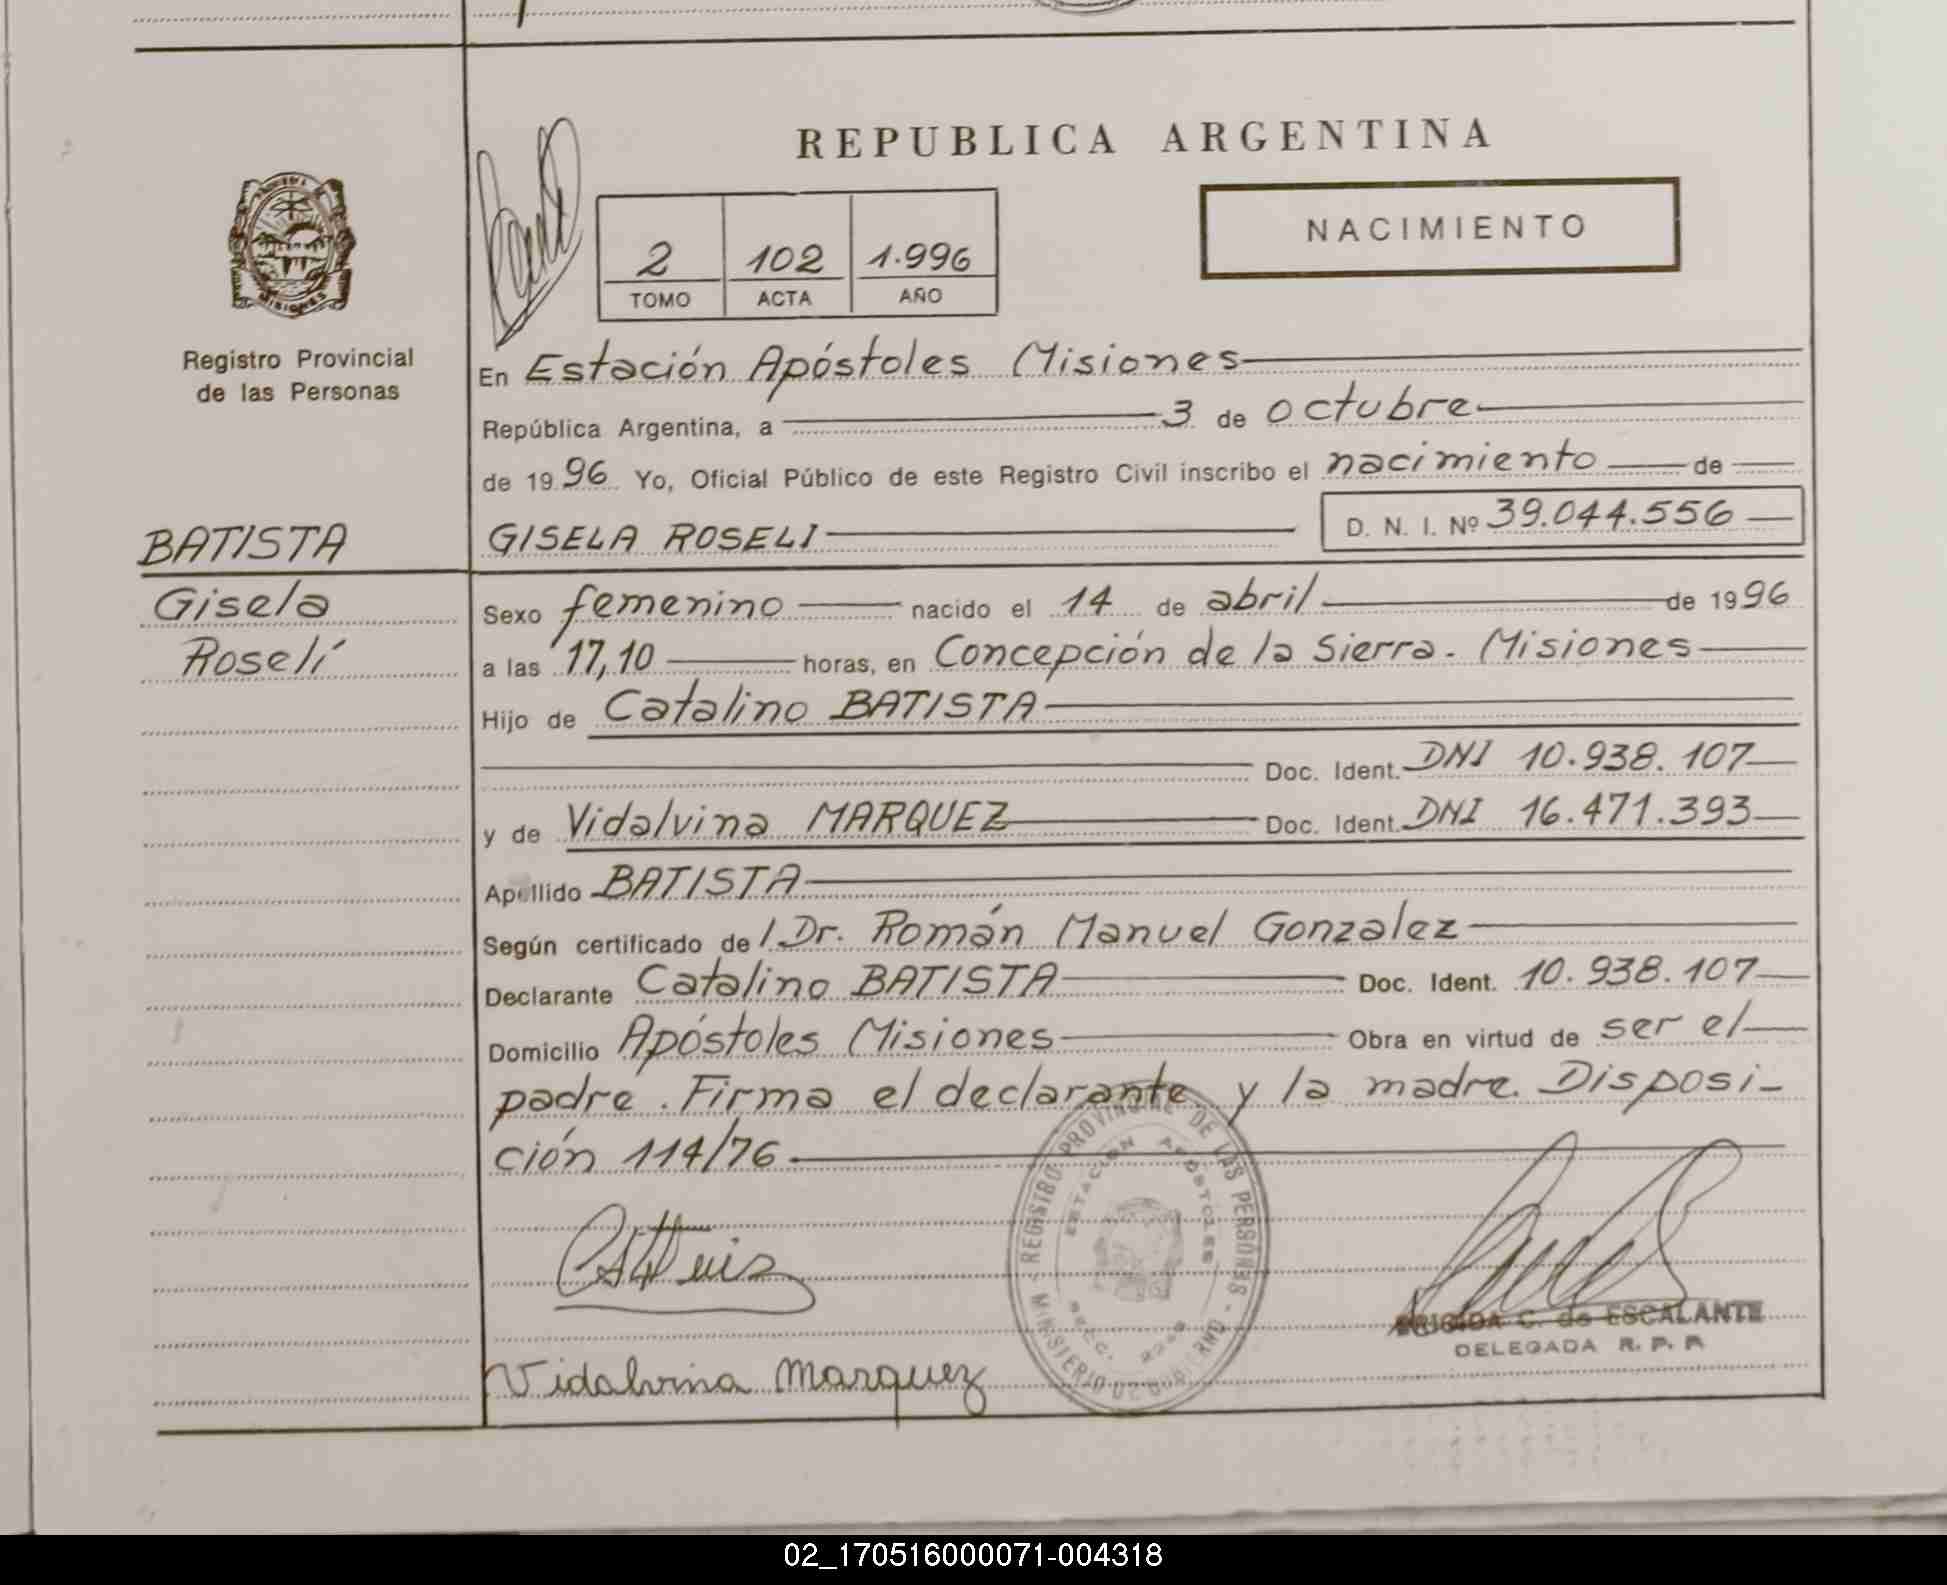 REPUBLICA ARGENTINA
NACIMIENTO
2 102 1.996
TOMO ACTA AÑO
MISIONES
Registro Provincial
de las Personas
En Estación Apóstoles Misiones
República Argentina, a 3 de octubre
de 1996 Yo, Oficial Público de este Registro Civil inscribo el nacimiento de
BATISTA
GISELA ROSELI D. N. I. Nº 39.044.556
Gisela
Roselí
Sexo femenino nacido el 14 de abril de 1996
a las 17,10 horas, en Concepción de la Sierra. Misiones
Hijo de Catalino BATISTA
Doc. Ident. DNI 10.938.107
y de Vidalvina MARQUEZ Doc. Ident. DNI 16.471.393
Apellido BATISTA
Según certificado de l Dr. Román Manuel Gonzalez
Declarante Catalino BATISTA Doc. Ident. 10.938.107
Domicilio Apóstoles Misiones Obra en virtud de ser el
padre. Firma el declarante y la madre. Disposi-
ción 114/76
REGISTRO PROVINCIAL DE LAS PERSONAS - MINISTERIO DE GOBIERNO
ESTACION APOSTOLES
BRIGIDA C. de ESCALANTE
DELEGADA R. P. P.
Vidalvina Marquez
02_170516000071-004318